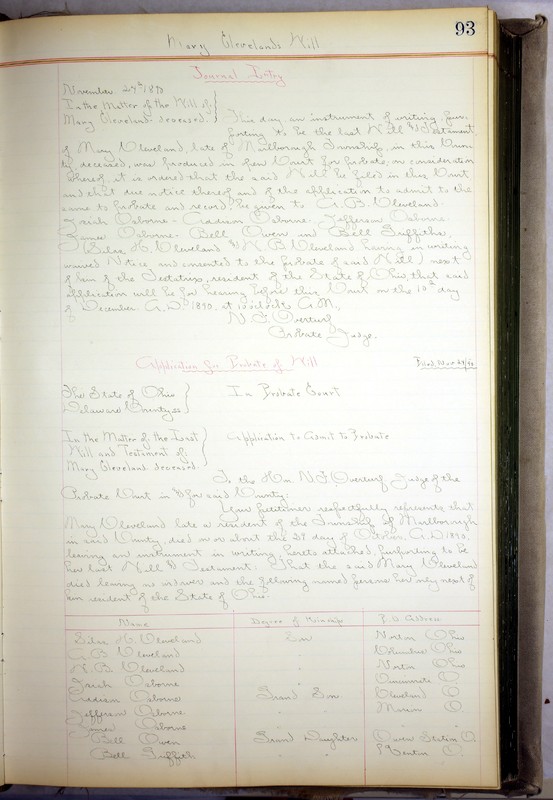 93
Mary Clevelands Will
Journal Entry
November 24th 1890
In the Matter of the Will of
Mary Cleveland deceased
This day an instrument of writing pur-
porting to be the last Will & Testament
of Mary Cleveland, late of Marlborough Township, in this Coun-
ty deceased, was produced in open Court for probate, on consideration
whereof, it is ordered that the said Will be filed in this Court
and that due notice thereof and of the application to admit to the
same to probate and record, be given to C. B. Cleveland
Osborne - Addison Osborne, Jefferson Osborne
James Osborne - Bell Owen and Bell Griffith,
(Silas H. Cleveland & B. Cleveland having in writing
waived Notice and consented to the probate of said Will) next
of kin of the Testatrix, resident of the State of Ohio, that said
application will be for hearing before this Court on the 10th day
of December A.D. 1890, at 10 o'clock A.M.,
N F Overturf
Probate Judge.
Application for Probate of Will
Filed Nov 24/90
The State of Ohio
Delaware County ss
In Probate Court
In the Matter of the Last
Will and Testament of
Mary Cleveland deceased
Application to Admit to Probate
To the Hon N F Overturf Judge of the
Probate Court in & for said County:
Your petitioner respectfully represents, that
Mary Cleveland late a resident of the Township of Marlborough
in said County, died on or about the 29 day of October, A.D. 1890,
leaving an instrument in writing, hereto attached, purporting to be
her last Will & Testament: That the said Mary Cleveland
died leaving no widower and the following named persons her only next of
kin resident of the State of Ohio:
Name Degree of Kinship P. O. Address
Silas H. Cleveland Son Norton Ohio
C. B. Cleveland " Columbus Ohio
B. Cleveland " Norton Ohio
Osborne Cincinnati O.
Addison Osborne Grand Son Cleveland O.
Jefferson Osborne " Marion O.
James Osborne " "
Bell Owen Grand Daughter Owen Station O
Bell Griffith " " Kenton O.